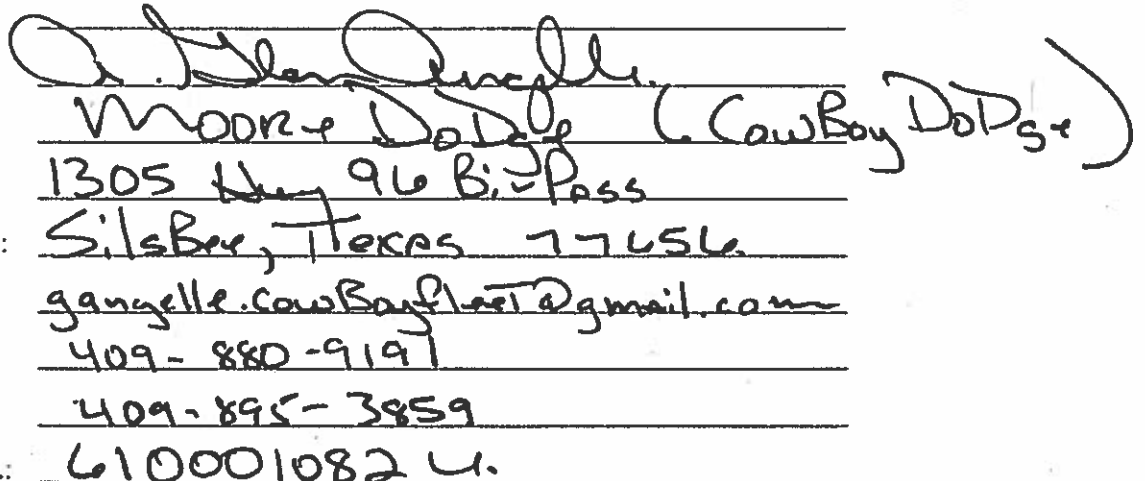 Moore DoDge (CowBoy DoDge)
1305 Hwy 96 Bi-Pass
: SilsBee, Texas 77656
gangelle.cowBoyfleeT@gmail.com
409-880-9191
409-895-3859
.: 6100010824.